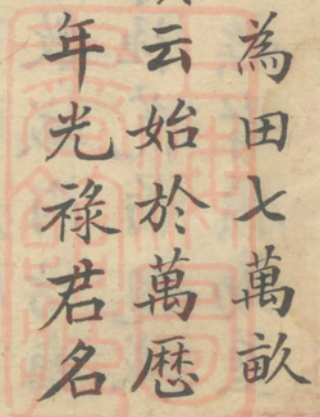 為田七萬畝
云始於萬厯
年光祿君名